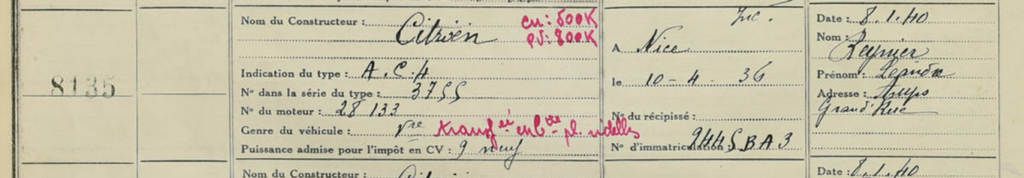 8135
Nom du Constructeur : Citroën
cu : 500K
PV : 800K
Indication du type : A.C.4
N° dans la série du type : 3755
N° du moteur : 28 133
Genre du véhicule : Vre en Cte pl. ridelles
Puissance admise pour l'impôt en CV : 9 neuf
Nom du Constructeur :
Inc.
A Nice
le 10-4-36
N° du récipissé :
N° d'immatriculation : 2445BA3
Date : 8.1.40
Nom : Reynier
Prénom : Léandre
Adresse : Aups
Grand'Rue
Date : 8.1.40